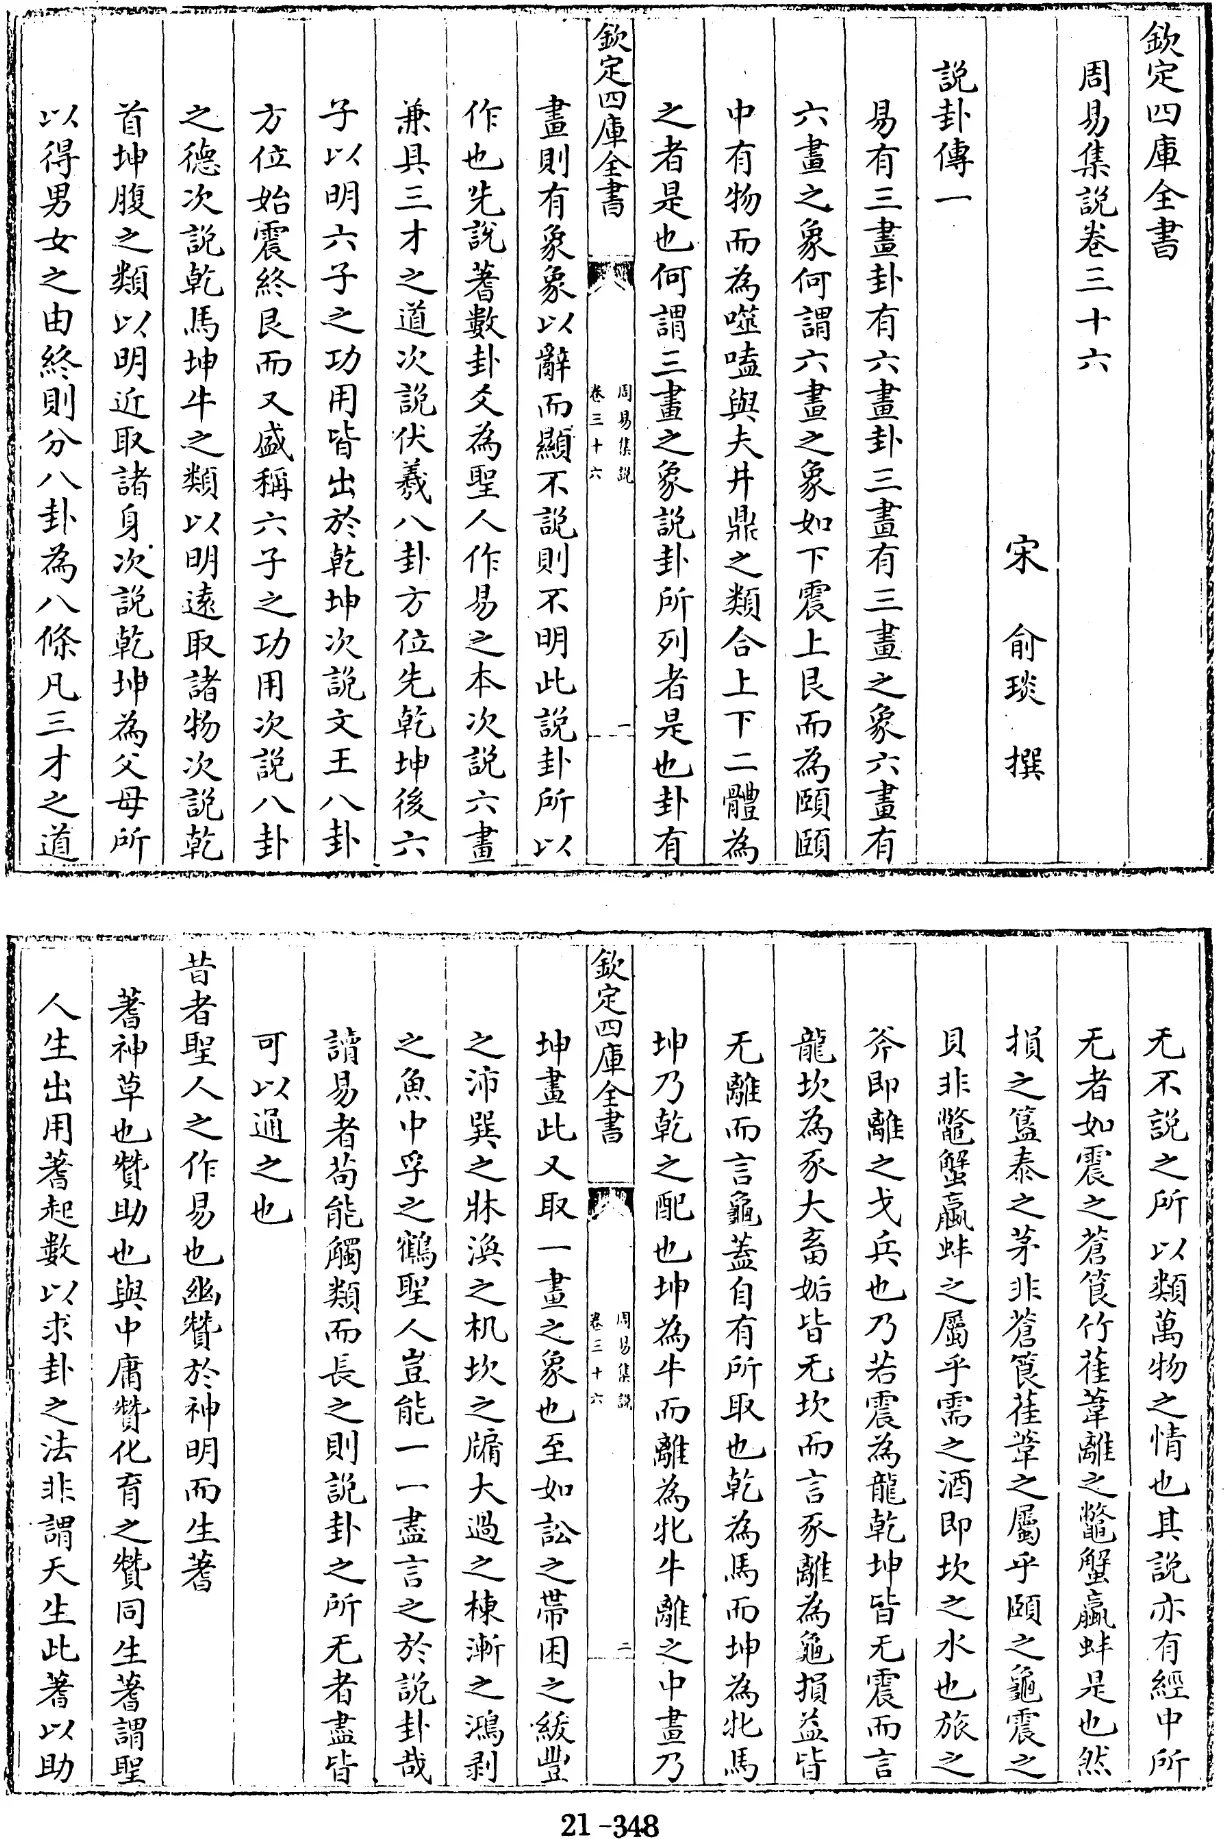 欽定四庫全書
周易集説卷三十六
宋　俞琰　撰
説卦傳一
易有三畫卦有六畫卦三畫有三畫之象六畫有
六畫之象何謂六畫之象如下震上艮而為頤頤
中有物而為噬嗑與夫井鼎之類合上下二體為
之者是也何謂三畫之象説卦所列者是也卦有
欽定四庫全書
周易集説
卷三十六
一
畫則有象象以辭而顯不説則不明此説卦所以
作也先説蓍數卦爻為聖人作易之本次説六畫
兼具三才之道次説伏羲八卦方位先乾坤後六
子以明六子之功用皆出於乾坤次説文王八卦
方位始震終艮而又盛稱六子之功用次説八卦
之德次説乾馬坤牛之類以明遠取諸物次説乾
首坤腹之類以明近取諸身次説乾坤為父母所
以得男女之由終則分八卦為八條凡三才之道
无不説之所以類萬物之情也其説亦有經中所
无者如震之蒼筤竹萑葦離之鼈蟹蠃蚌是也然
損之簋泰之茅非蒼筤萑葦之屬乎頤之龜震之
貝非鼈蟹蠃蚌之屬乎需之酒即坎之水也旅之
斧即離之戈兵也乃若震為龍乾坤皆无震而言
龍坎為豕大畜姤皆无坎而言豕離為龜損益皆
无離而言龜蓋自有所取也乾為馬而坤為牝馬
坤乃乾之配也坤為牛而離為牝牛離之中畫乃
欽定四庫全書
周易集説
卷三十六
二
坤畫此又取一畫之象也至如訟之帶困之紱豐
之沛巽之牀渙之机坎之牖大過之棟漸之鴻剥
之魚中孚之鶴聖人豈能一一盡言之於説卦哉
讀易者茍能觸類而長之則説卦之所无者盡皆
可以通之也
昔者聖人之作易也幽贊於神明而生蓍
蓍神草也贊助也與中庸贊化育之贊同生蓍謂聖
人生出用蓍起數以求卦之法非謂天生此蓍以助
21-348